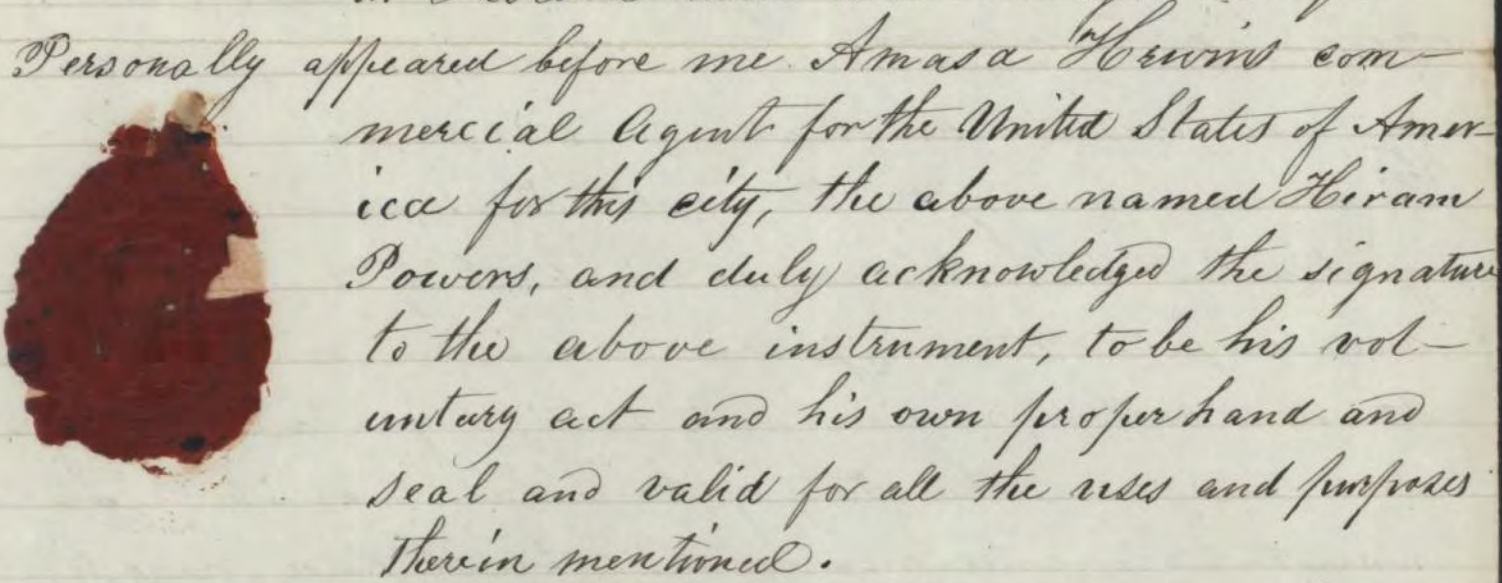 Personally appeared before me Amasa Hewins com-
mercial Agent for the United States of Amer-
ica for this city, the above named Hiram
Powers, and duly acknowledged the signature
to the above instrument, to be his vol-
untary act and his own proper hand and
seal and valid for all the uses and purposes
therein mentioned.